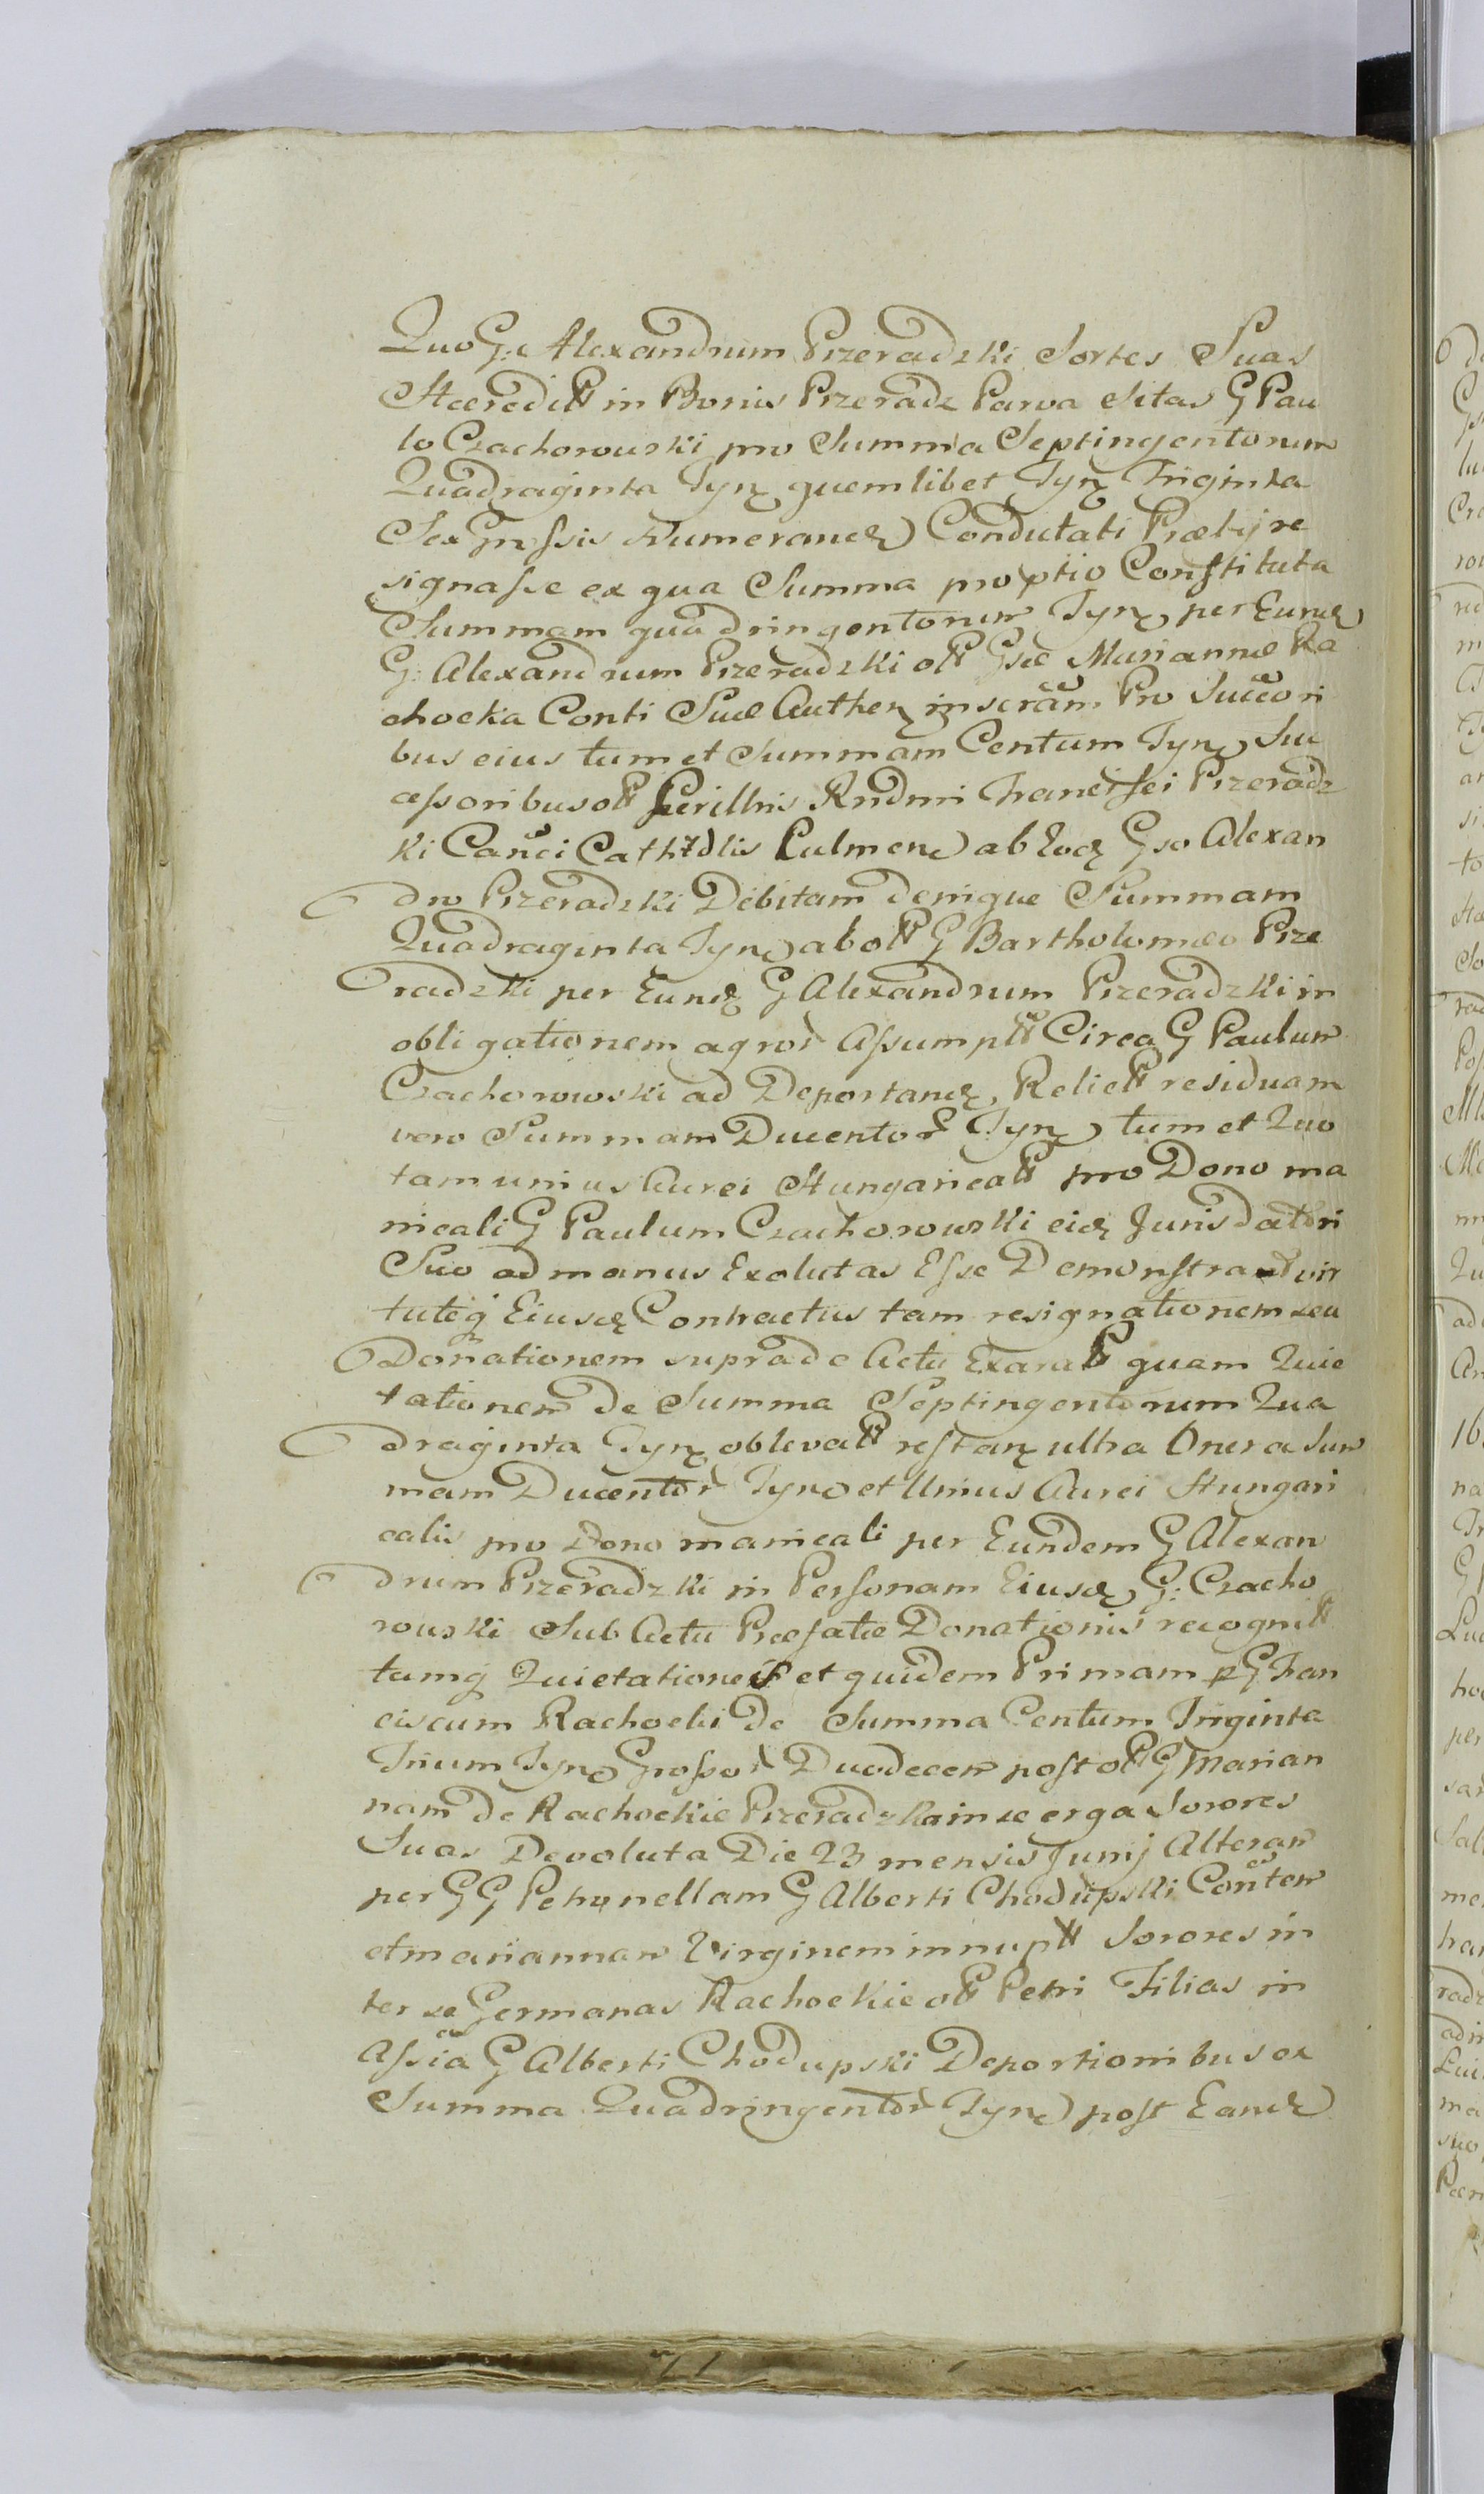 Quo G: Alexandrum Przeradzki Sortes Suas
Haeredit in Bonis Przeradz Parva Sitas G Pau
lo Czachorowski pro Summa Septingentorum
Quadraginta Tyn quemlibet Tyn Triginta
Sex Grossis Numerand Condutati Praetij re
signasse ex qua Summa pro ptio Constituta
Summam quadringentorum Tyn per Eund
G: Alexandrum Przeradzki ol Gsae Mariannae Ra
chocka Conti Suae Authen inscram Pro Succori
bus eius tum et Summam Centum Tyn Suc
cessoribus ol Perillris Rndmi Francissci Przeradz
ki Canci Cathdlis Culmen ab Eod Gso Alexan
dro Przeradzki Debitam denique Summam
Quadraginta Tyn ab ol G Bartholomaeo Prze
radzki per Eund G Alexandrum Przeradzki in
obligationem agror Assumpt Circa G Paulum
Czachorowski ad Deportand, Relict residuam
vero Summam Ducentor Tyn tum et Quo
tam unius Aurei Hungarical pro Dono ma
nicali G Paulum Czachorowski eid Juris datori
Suo ad manus Exolutas Esse Demonstrat vir
tuteq Eiusd Contractus tam resignationem seu
Donationem supra de Actu Exarat quam Quie
tationem de Summa Septingentorum Qua
draginta Tyn oblevat restan ultra Onera Sum
mam Ducentor Tyn et Unius Aurei Hungari
calis pro Dono manicali per Eundem G Alexan
drum Przeradzki in Personam Eiusd G: Czacho
rowski Sub Actu Praefatae Donationis recognit
tamq Quietationes et quidem Primam p G Fran
ciscum Rachocki de Summa Centum Triginta
Trium Tyn Grossor Duodecem post ol G Marian
nam de Rachockie Przeradzka in se erga Sorores
Suas Devoluta Die 23 mensis Junij Alteram
per GG Petronellam G Alberti Chodupski Contem
et mariannam Virginem innupt Sorores in
ter se Germanas Rachockie ol Petri Filias in
Assia G Alberti Chodupski De portionibus ex
Summa Quadringentor Tyn post Eand